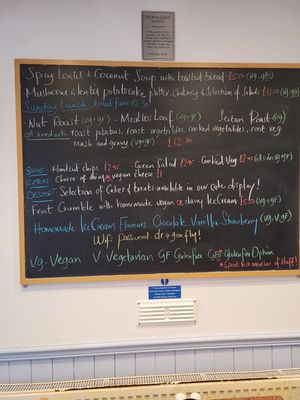 FOOD ALLERGY
NOTICE
Spicy Lentil & Coconut Soup with toasted bread £5.00 (vg.gfo)
Mushroom & lentil potato cake platter, chutney & Selection of Salads £11.00 (vg.gf)
Sunday Lunch, served from 12.30
- Nut Roast (vg.gf) - Meatless Loaf (vg.gf) - Seitan Roast (vg)
all served with: roast potatoes, roast vegetables, cooked vegetables, root veg
mash and gravy (vg.gf) - £12.50
SIDES: Handcut chips £2.95 - Green Salad £2.95 Cooked Veg £2.95
EXTRAS: Choice of dairy or vegan cheese £1
DESSERT: Selection of Cakes & treats available in our cake display!
Fruit Crumble with homemade vegan or dairy Ice Cream £5.50 (vg.gf)
Homemade Ice Cream Flavours Chocolate Vanilla Strawberry (vg.v.gf)
Wifi password: dragonfly!
Vg. Vegan V Vegetarian GF Gluten free GFO Gluten free Option
*speak to a member of staff!